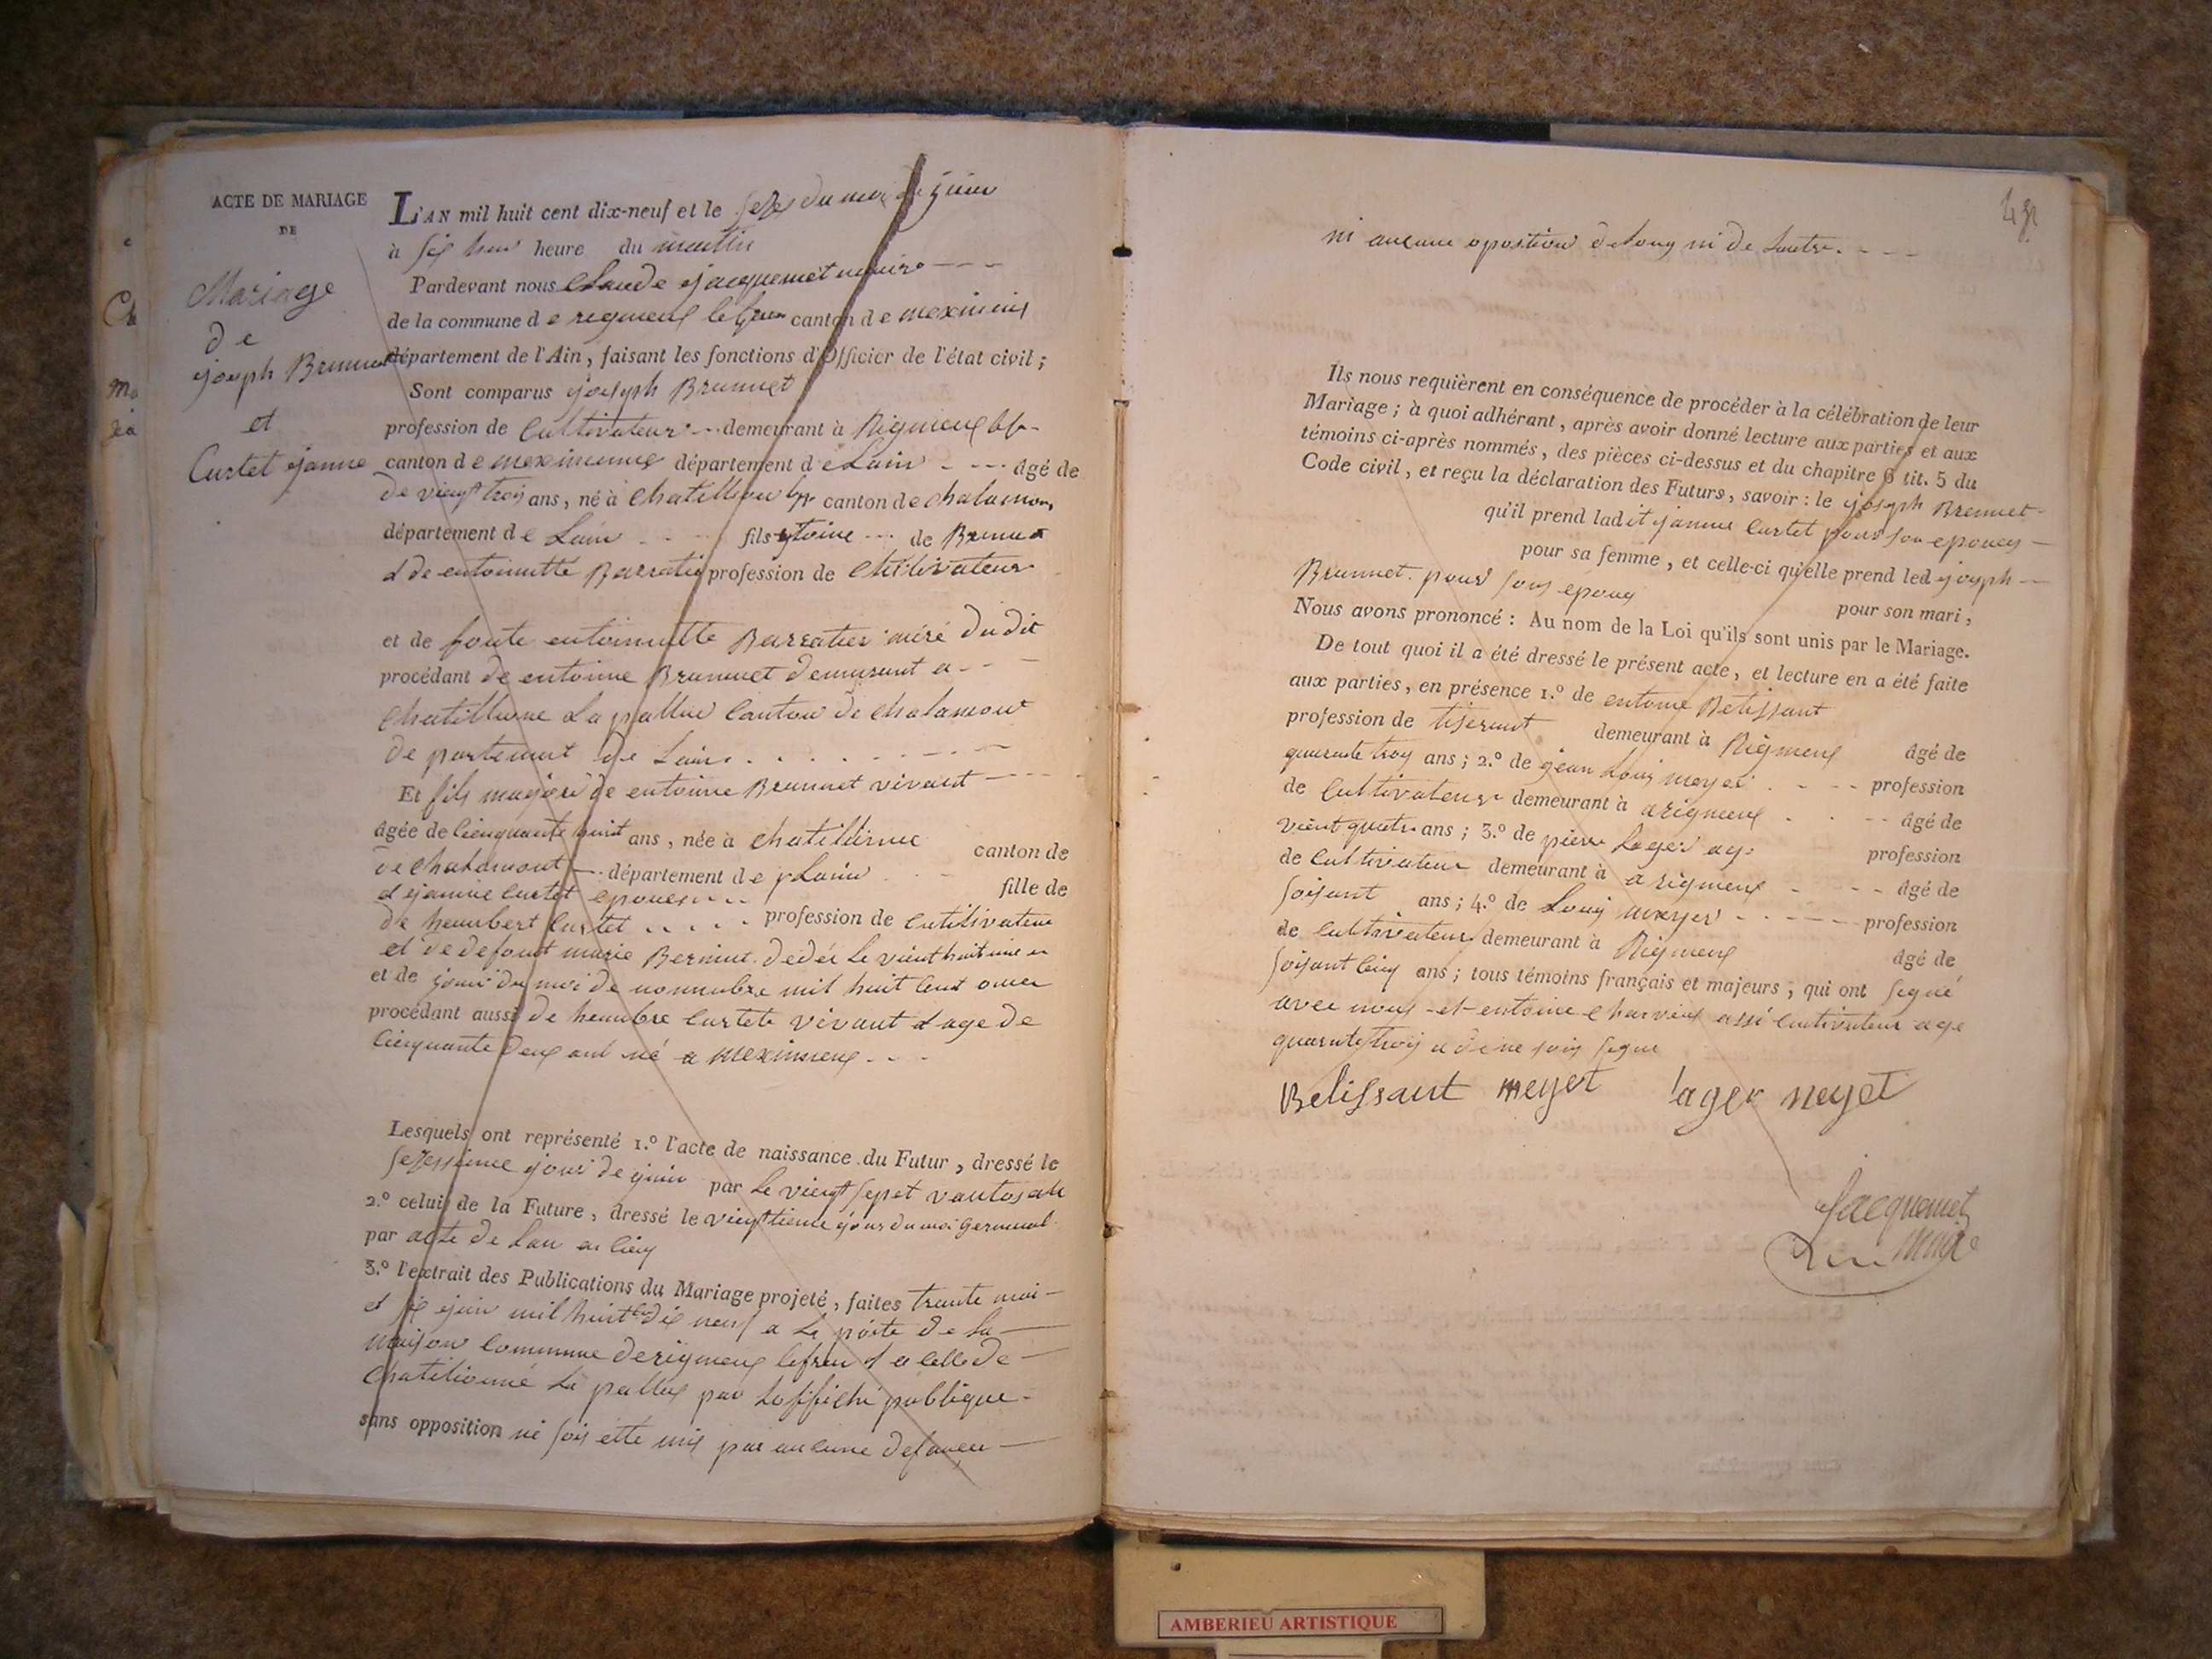 ACTE DE MARIAGE
DE
Mariage
de
joseph Brunnet
et
Curtet janne
L'AN mil huit cent dix-neuf et le sezes du moi de juin
à six heur heure du mattin
Pardevant nous Claude jacquemet maire
de la commune de rigneux le fran canton de meximieux
département de l'Ain, faisant les fonctions d'Officier de l'état civil;
Sont comparus joseph Brunnet
profession de Cultivateur demeurant à Rigneux
canton de meximieux département de Lain âgé de
de vingt trois ans, né à Chatillon canton de chalamon
département de Lain fils de Brunnet
d de entoinette Barratier profession de Cultivateur
et de entoinette Barratier mere du dit
procédant de entoinne Brunnet demurant a
Chatillonne La pallud Canton de chalamont
de partemant de Lain
Et fils majore de entoinne Brunnet vivant
âgée de Cienquante huit ans, née à Chatillonne canton de
de chalamont département de Lain fille de
d janne Curtet epouse
de heumbert Curtet profession de Cultivateur
et de defount marie Berniut dedée Le vient huitieme
et de jour du moi de nonnubre mil huit Cent onze
procédant aussi de heumbre Curtete vivant d age de
Cienquante deux ant né a meximieux
Lesquels ont représenté 1.º l'acte de naissance du Futur, dressé le
sezessieme jour de juin par Le viengt sepet vantos an
2.º celui de la Future, dressé le viengttieme jour du moi Germinal
par acte de Lan en Cieng
3.º l'extrait des Publications du Mariage projeté, faites trante mai
et six juin mil huit Cen dix neuf a La porte de La
maison Commune de rigneux lefran d a Celle de
Chatilionne La pallud par Laffiche publique
sans opposition ni soit ette mis par aucune
ni aucune oposition de Loug ni de Lautre.
Ils nous requièrent en conséquence de procéder à la célébration de leur
Mariage; à quoi adhérant, après avoir donné lecture aux parties et aux
témoins ci-après nommés, des pièces ci-dessus et du chapitre 6 tit. 5 du
Code civil, et reçu la déclaration des Futurs, savoir: le joseph Brunnet
qu'il prend ladit janne Curtet pour son epouey
pour sa femme, et celle-ci qu'elle prend led joseph
Brunnet pour sons epoux
pour son mari,
Nous avons prononcé: Au nom de la Loi qu'ils sont unis par le Mariage.
De tout quoi il a été dressé le présent acte, et lecture en a été faite
aux parties, en présence 1.º de entoine Belissant
profession de tiserant demeurant à Rigneux âgé de
quarante troy ans; 2.º de jean Louis meyer profession
de Cultivateur demeurant à a rigneux âgé de
vient quatre ans; 3.º de pierre Lager profession
de Cultivateur demeurant à a rigneux âgé de
soisant ans; 4.º de Louis meyer profession
de Cultivateur demeurant à Rigneux âgé de
soisant Cieng ans; tous témoins français et majeurs, qui ont segné
avec nous et entoine Charvieu assi Cultivateur age
quarante trois a de ne sois segne
Belissant meyet lager neyet
Jacquemet
maire
AMBERIEU ARTISTIQUE